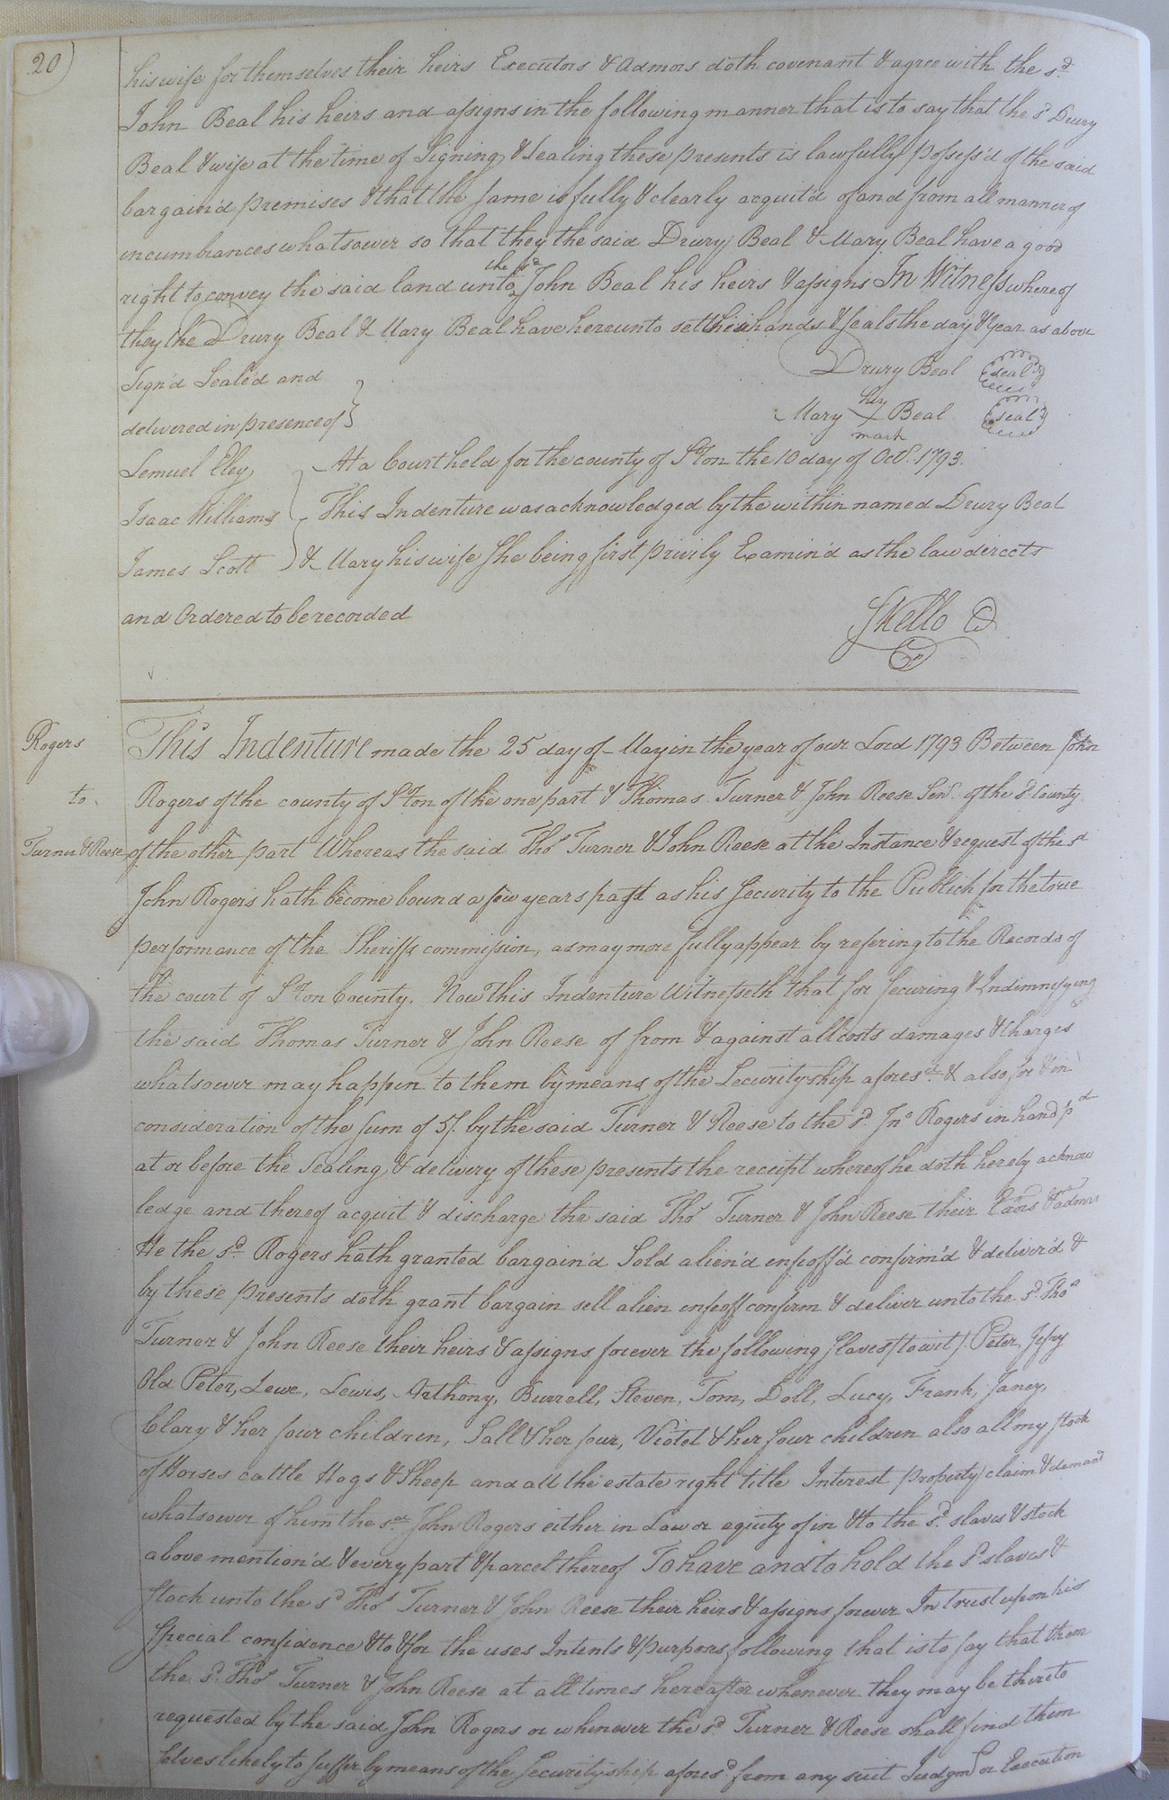 20)
his wife for themselves their heirs Executors & Admors doth covenant & agree with the sd.
John Beal his heirs and assigns in the following manner that is to say that the sd Drury
Beal & wife at the time of Signing & Sealing these presents is lawfully possess'd of the said
bargain'd premises & that the same is fully & clearly acquit'd of and from all manner of
incumbrances whatsoever so that they the said Drury Beal & Mary Beal have a good
right to convey the said land unto the sd John Beal his heirs & assigns In Witness whereof
they the Drury Beal & Mary Beal have hereunto set their hands & seals the day & year as above
Sign'd Seal'd and
delivered in presence of }
Drury Beal (seal)
Mary her X mark Beal (seal)
Lemuel Eley
Isaac Williams
James Scott
At a Court held for the county of S'ton the 10 day of Octr. 1793.
This Indenture was acknowledged by the within named Drury Beal
& Mary his wife She being first privily Examin'd as the law directs
and Ordered to be recorded
S Kello C
Rogers
to
Turner & Reese
This Indenture made the 25 day of May in the year of our Lord 1793 Between John
Rogers of the county of S'ton of the one part & Thomas Turner & John Reese Senr. of the sd. County
of the other part Whereas the said Thos Turner & John Reese at the Instance & request of the sd
John Rogers hath become bound a few years past as his Security to the Publick for the true
performance of the Sheriffs commission, as may more fully appear by refering to the Records of
the court of S'ton County. Now This Indenture Witnesseth that for securing & Indemnifying
the said Thomas Turner & John Reese of from & against all costs damages & charges
whatsoever may happen to them by means of the Securityship aforesd. & also for & in
consideration of the sum of 5/. by the said Turner & Reese to the sd. Jno Rogers in hand pd
at or before the Sealing & delivery of these presents the receipt whereof he doth hereby acknow
ledge and thereof acquit & discharge the said Thos Turner & John Reese their Exors & admrs
He the sd. Rogers hath granted bargain'd Sold alien'd enfeoff'd confirm'd & deliver'd &
by these presents doth grant bargain sell alien enfeoff confirm & deliver unto the sd. Thos
Turner & John Reese their heirs & assigns forever the following slaves (to wit) Peter,
Old Peter, Lewe, Lewis, Anthony, Burrell, Steven, Tom, Doll, Lucy, Frank, Janey,
Clary & her four children, Sall & her four, Violet & her four children also all my stock
of Horses cattle Hogs & Sheep and all the estate right title Interest property claim & demand
whatsoever of him the sd. John Rogers either in Law or equity of in & to the sd. slaves & stock
above mention'd & every part & parcel thereof To have and to hold the sd slaves &
stock unto the sd Thos Turner & John Reese their heirs & assigns forever In trust upon his
special confidence & to & for the uses Intents & purposes following that is to say that them
the sd. Thos Turner & John Reese at all times hereafter whenever they may be thereto
requested by the said John Rogers or whenever the sd. Turner & Reese shall find them
selves likely to suffer by means of the Securityship aforesd from any suit Judgmt or Execution